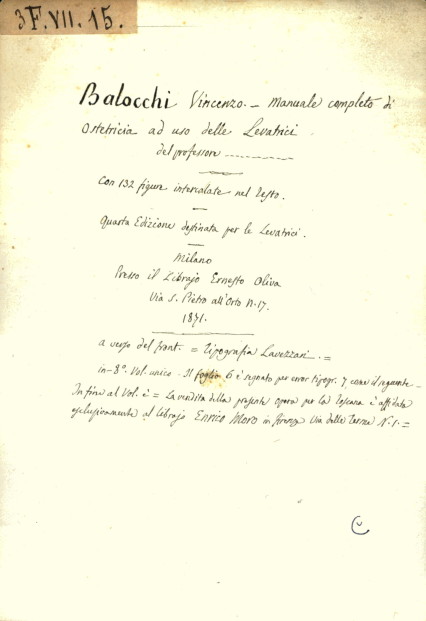 3F.VII.15.
Balocchi Vincenzo. - Manuale completo di
Ostetricia ad uso delle Levatrici
del professore
Con 132 figure intercalate nel Testo.
Quarta Edizione destinata per le Levatrici.
Milano
Presso il Librajo Ernesto Oliva
Via S. Pietro all'Orto N. 17.
1871.
a verso del front. = Tipografia Lavezzari. =
in-8°. Vol. unico. Il foglio 6 è segnato per error tipogr. 7, come il seguente -
In fine al Vol. è = La vendita della presente opera per la Toscana è affidata
esclusivamente al librajo Enrico Moro in Firenze Via delle N. 1. =